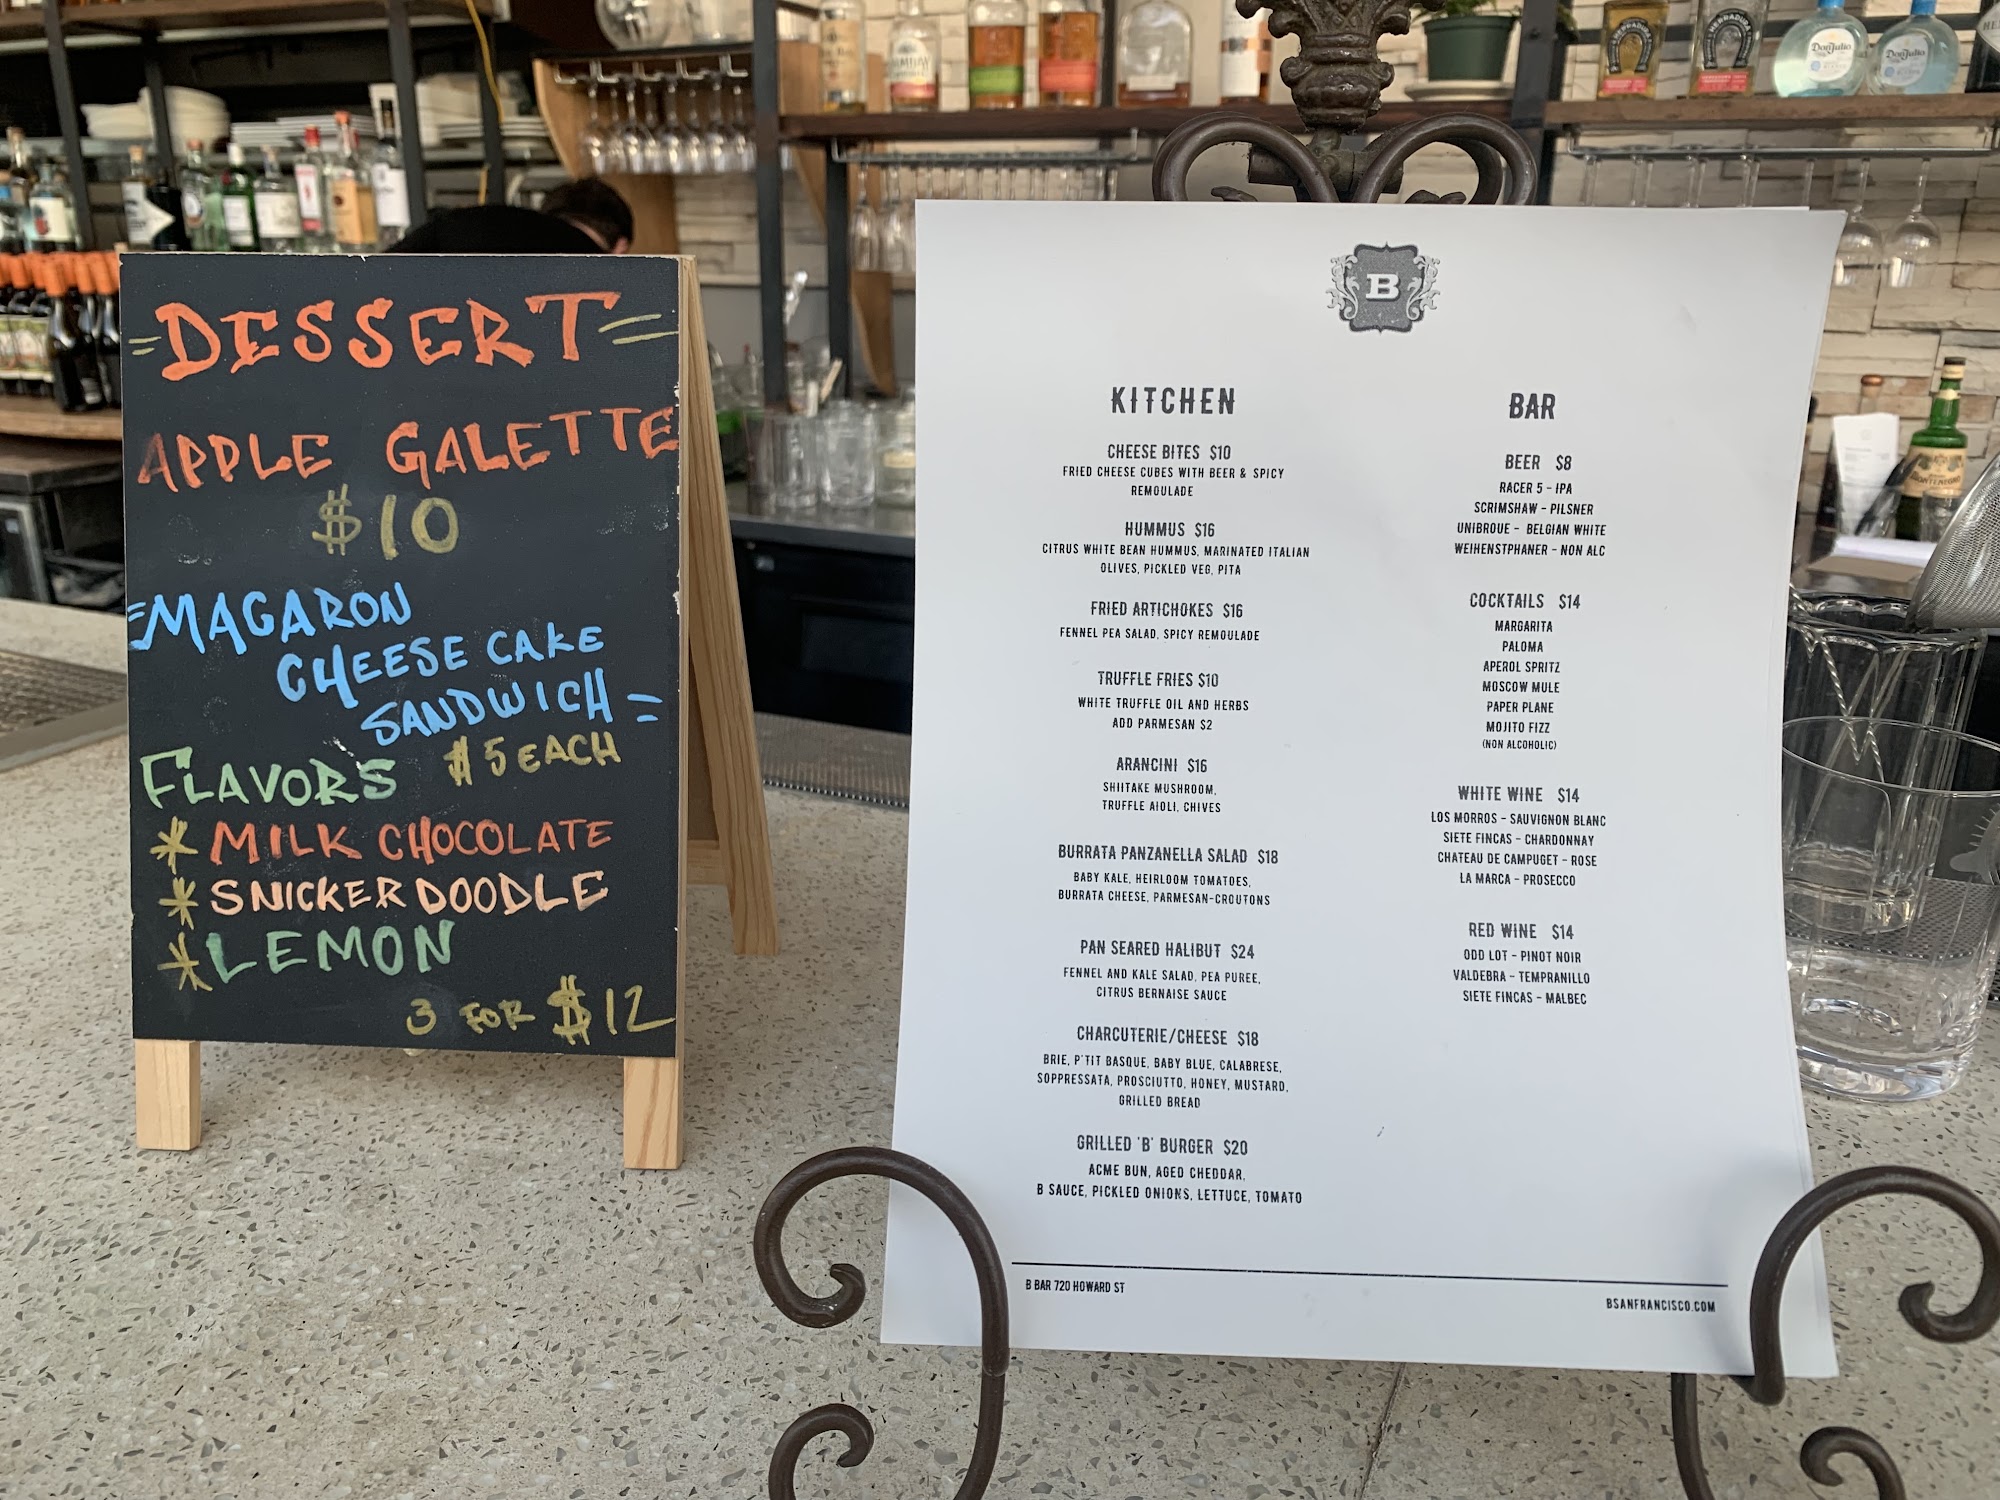 DESSERT
APPLE GALETTE
$10
MACARON
CHEESE CAKE
SANDWICH
$5 EACH
FLAVORS
* MILK CHOCOLATE
* SNICKERDOODLE
* LEMON
3 FOR $12
B
KITCHEN
CHEESE BITES $10
FRIED CHEESE CUBES WITH BEER & SPICY
REMOULADE
HUMMUS $16
CITRUS WHITE BEAN HUMMUS, MARINATED ITALIAN
OLIVES, PICKLED VEG, PITA
FRIED ARTICHOKES $16
FENNEL PEA SALAD, SPICY REMOULADE
TRUFFLE FRIES $10
WHITE TRUFFLE OIL AND HERBS
ADD PARMESAN $2
ARANCINI $16
SHIITAKE MUSHROOM,
TRUFFLE AIOLI, CHIVES
BURRATA PANZANELLA SALAD $18
BABY KALE, HEIRLOOM TOMATOES,
BURRATA CHEESE, PARMESAN-CROUTONS
PAN SEARED HALIBUT $24
FENNEL AND KALE SALAD, PEA PUREE,
CITRUS BERNAISE SAUCE
CHARCUTERIE/CHEESE $18
BRIE, P'TIT BASQUE, BABY BLUE, CALABRESE,
SOPPRESSATA, PROSCIUTTO, HONEY, MUSTARD,
GRILLED BREAD
GRILLED 'B' BURGER $20
ACME BUN, AGED CHEDDAR,
B SAUCE, PICKLED ONIONS, LETTUCE, TOMATO
BAR
BEER $8
RACER 5 - IPA
SCRIMSHAW - PILSNER
UNIBROUE - BELGIAN WHITE
WEIHENSTPHANER - NON ALC
COCKTAILS $14
MARGARITA
PALOMA
APEROL SPRITZ
MOSCOW MULE
PAPER PLANE
MOJITO FIZZ
(NON ALCOHOLIC)
WHITE WINE $14
LOS MORROS - SAUVIGNON BLANC
SIETE FINCAS - CHARDONNAY
CHATEAU DE CAMPUGET - ROSE
LA MARCA - PROSECCO
RED WINE $14
ODD LOT - PINOT NOIR
VALDEBRA - TEMPRANILLO
SIETE FINCAS - MALBEC
B BAR 720 HOWARD ST
BSANFRANCISCO.COM
HERRADURA
Don Julio
Don Julio
MONTENEGRO